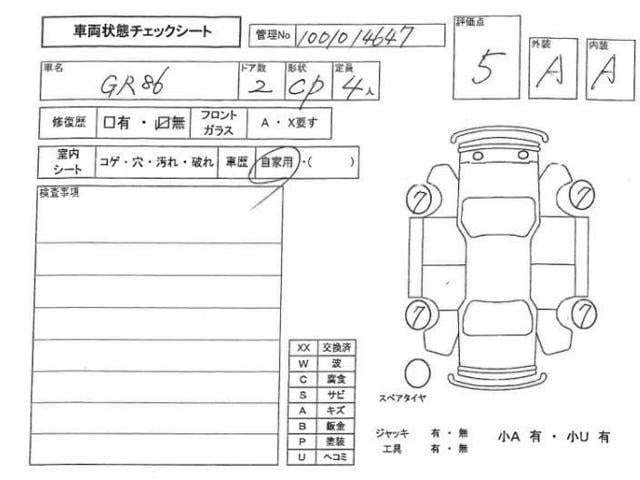 車両状態チェックシート
管理No 1001014647
評価点 5
外装 A
内装 A
車名 GR86
ドア数 2
形状 CP
定員 4人
修復歴 □有 ・ ☑無
フロントガラス A ・ X要す
室内シート コゲ・穴・汚れ・破れ
車歴 自家用 ・( )
検査事項
7 7
7 7
XX 交換済
W 波
C 腐食
S サビ
A キズ
B 鈑金
P 塗装
U ヘコミ
スペアタイヤ
ジャッキ 有 ・ 無
工具 有 ・ 無
小A 有 ・ 小U 有